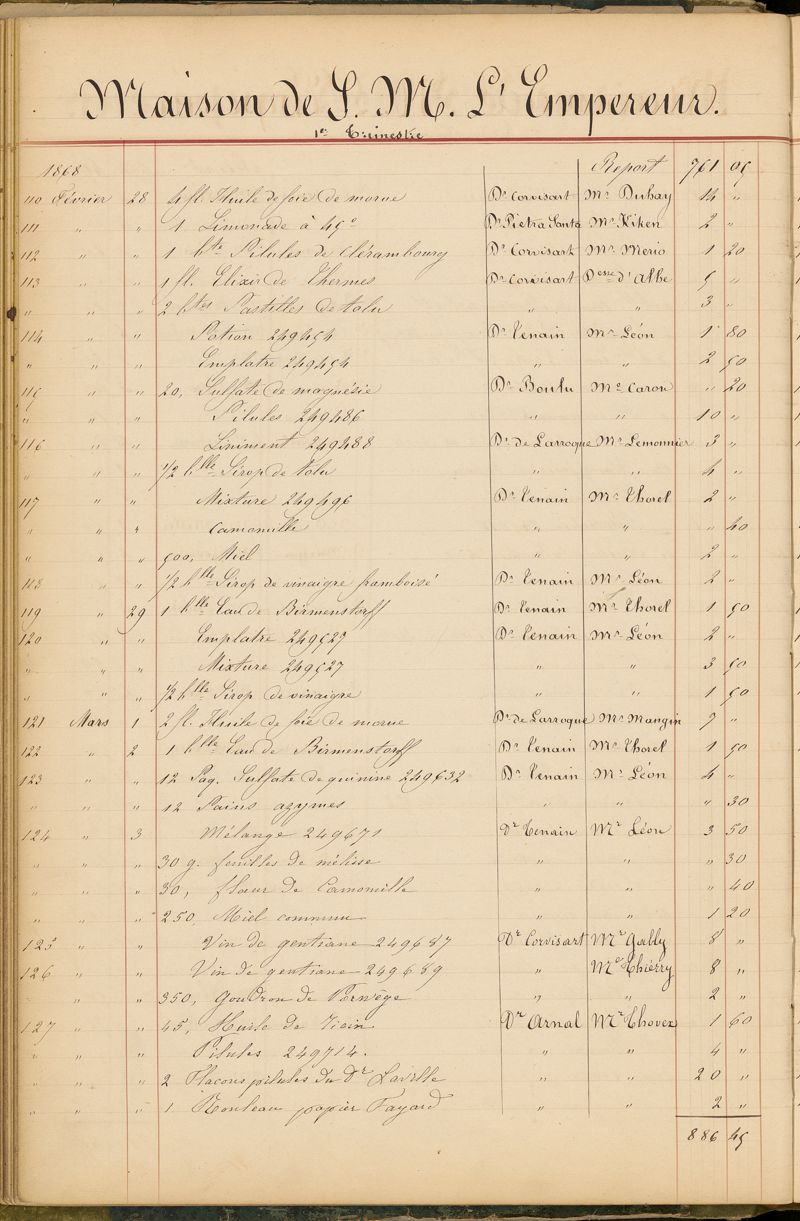 Maison de S. M. L'Empereur.
1er Trimestre
1868 Report 761 05
110 Février 28 4 fl. Huile de foie de morue Dr Corvisart Mr Duhay 14 "
111 " " 1 Limonade à 45° Dr Pietra Santa Mr Kiken 2 "
112 " " 1 bte Pilules de Clérambourg Dr Corvisart Mr Merio 1 20
113 " " 1 fl. Elixir de Thermes Dr Corvisart Desse d'Albe 5 "
" " " 2 btes Pastilles de tolu " " 3 "
114 " " Potion 249454 Dr Tenain Mr Léon 1 80
" " " Emplatre 249454 " " 2 50
115 " " 20, Sulfate de magnésie Dr Boulu Mr Caron " 20
" " " Pilules 249486 " " 10 "
116 " " Liniment 249488 Dr de Larroque Mr Lemonnier 3 "
" " " 1/2 blle Sirop de tolu " " 4 "
117 " " Mixture 249496 Dr Tenain Mr Thorel 2 "
" " " Camomille " " " 40
" " " 500, Miel " " 2 "
118 " " 1/2 blle Sirop de vinaigre framboisé Dr Tenain Mr Léon 2 "
119 " 29 1 blle Eau de Birmenstorff Dr Tenain Mr Thorel 1 50
120 " " Emplatre 249527 Dr Tenain Mr Léon 2 "
" " " Mixture 249527 " " 3 50
" " " 1/2 blle Sirop de vinaigre " " 1 50
121 Mars 1 2 fl. Huile de foie de morue Dr de Larroque Mr Mangin 7 "
122 " 2 1 blle Eau de Birmenstorff Dr Tenain Mr Thorel 1 50
123 " " 12 Paq. Sulfate de quinine 249632 Dr Tenain Mr Léon 4 "
" " " 12 Pains azymes " " " 30
124 " 3 Mélange 249671 Dr Tenain Mr Léon 3 50
" " " 30 g. feuilles de mélisse " " " 30
" " " 30, fleur de Camomille " " " 40
" " " 250, Miel commun " " 1 20
125 " " Vin de gentiane 249687 Dr Corvisart Mr Gally 8 "
126 " " Vin de gentiane 249689 " Mr Thierry 8 "
" " " 350, Goudron de Norwège " " 2 "
127 " " 45, Huile de ricin Dr Arnal Mr Thovex 1 60
" " " Pilules 249714. " " 4 "
" " " 2 Flacons pilules du Dr Laville " " 20 "
" " " 1 Rouleau papier Fayard " " 2 "
886 45